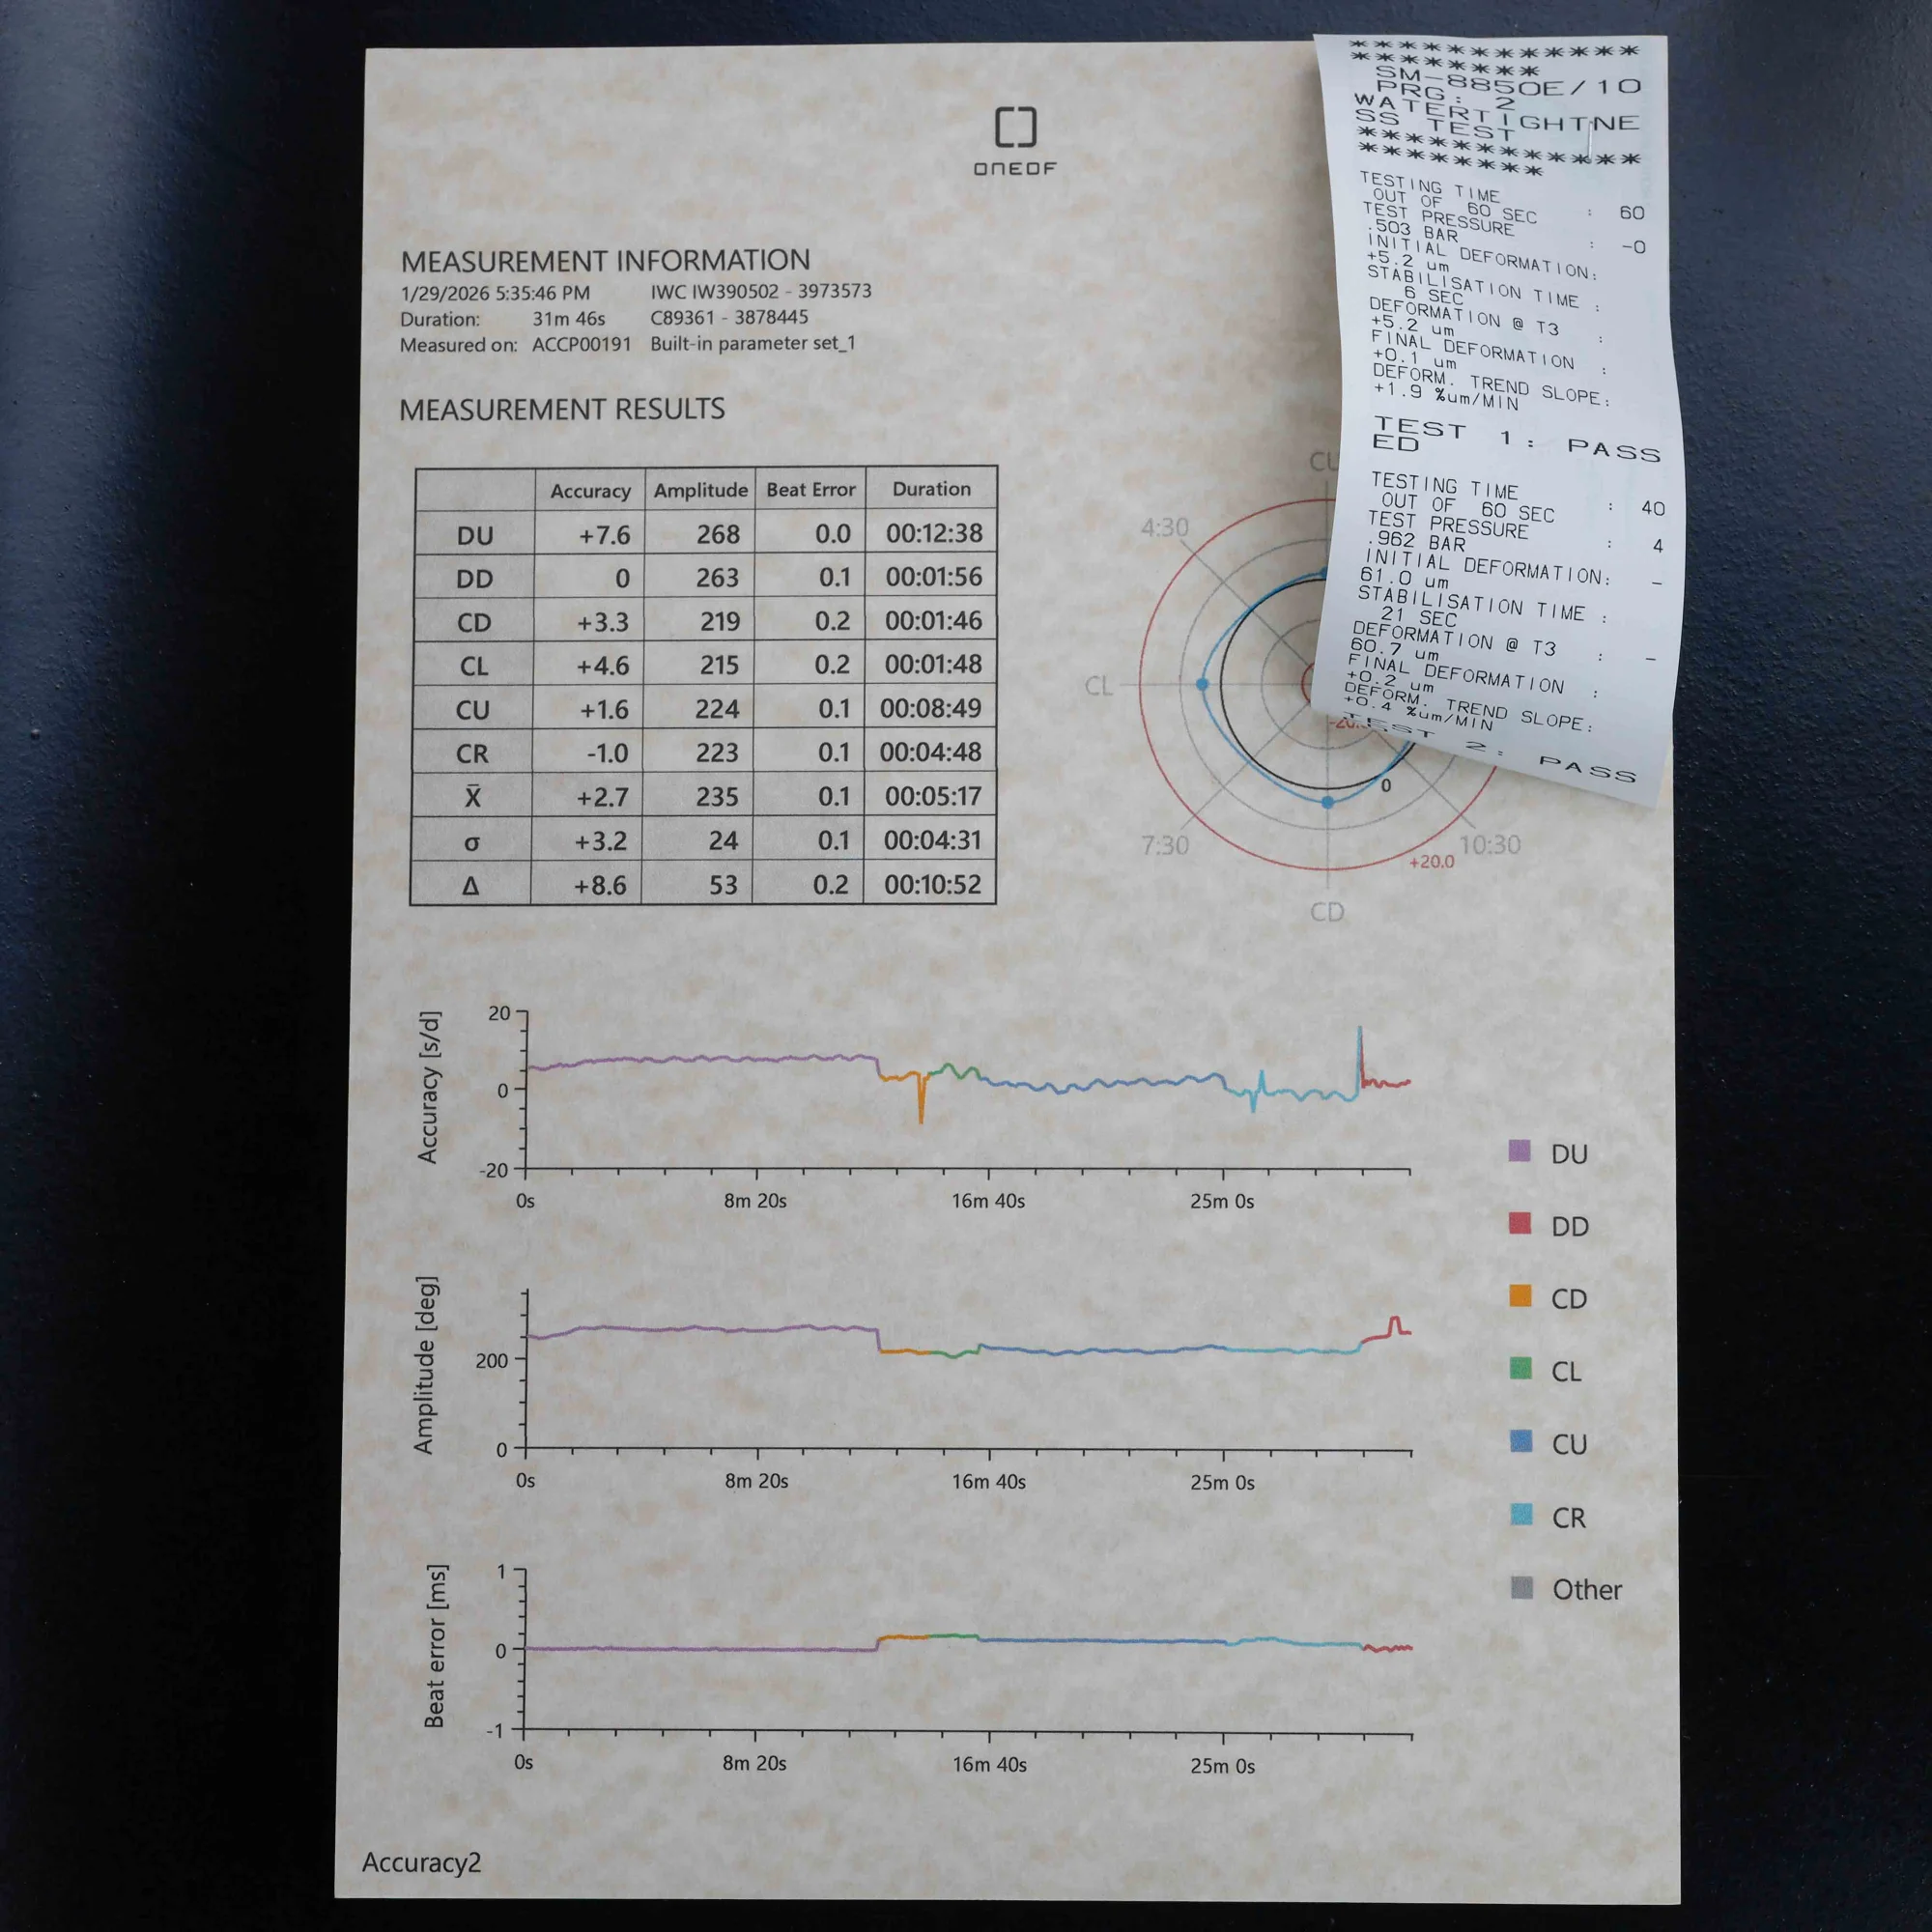 ONEOF
MEASUREMENT INFORMATION
1/29/2026 5:35:46 PM IWC IW390502 - 3973573
Duration: 31m 46s C89361 - 3878445
Measured on: ACCP00191 Built-in parameter set_1
MEASUREMENT RESULTS
Accuracy Amplitude Beat Error Duration
DU +7.6 268 0.0 00:12:38
DD 0 263 0.1 00:01:56
CD +3.3 219 0.2 00:01:46
CL +4.6 215 0.2 00:01:48
CU +1.6 224 0.1 00:08:49
CR -1.0 223 0.1 00:04:48
X̄ +2.7 235 0.1 00:05:17
σ +3.2 24 0.1 00:04:31
Δ +8.6 53 0.2 00:10:52
4:30
CL
7:30
CD
10:30
+20.0
0
********************
SM-8850E/10
PRG: 2
WATERTIGHTNE
SS TEST
********************
TESTING TIME : 60
OUT OF 60 SEC
TEST PRESSURE : -0
.503 BAR
INITIAL DEFORMATION:
+5.2 um
STABILISATION TIME :
6 SEC
DEFORMATION @ T3 :
+5.2 um
FINAL DEFORMATION :
+0.1 um
DEFORM. TREND SLOPE:
+1.9 %um/MIN
TEST 1: PASS
ED
TESTING TIME : 40
OUT OF 60 SEC
TEST PRESSURE : 4
.962 BAR
INITIAL DEFORMATION: -
61.0 um
STABILISATION TIME :
21 SEC
DEFORMATION @ T3 : -
60.7 um
FINAL DEFORMATION :
+0.2 um
DEFORM. TREND SLOPE:
+0.4 %um/MIN
TEST 2: PASS
Accuracy [s/d]
20
0
-20
0s 8m 20s 16m 40s 25m 0s
Amplitude [deg]
200
0
0s 8m 20s 16m 40s 25m 0s
Beat error [ms]
1
0
-1
0s 8m 20s 16m 40s 25m 0s
DU
DD
CD
CL
CU
CR
Other
Accuracy2